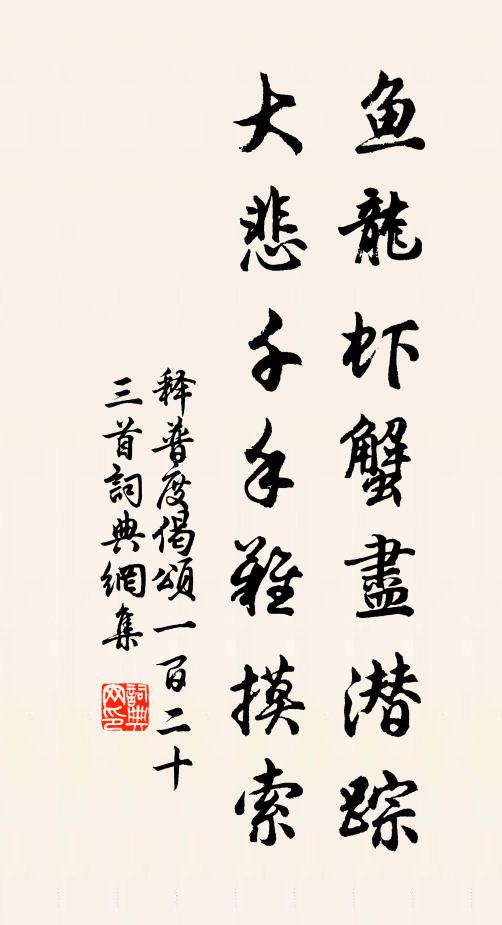 鱼龍虾蟹盡潜踪
大悲千手難摸索
释普度偈頌一百二十
三首詞典網集
詞典网印